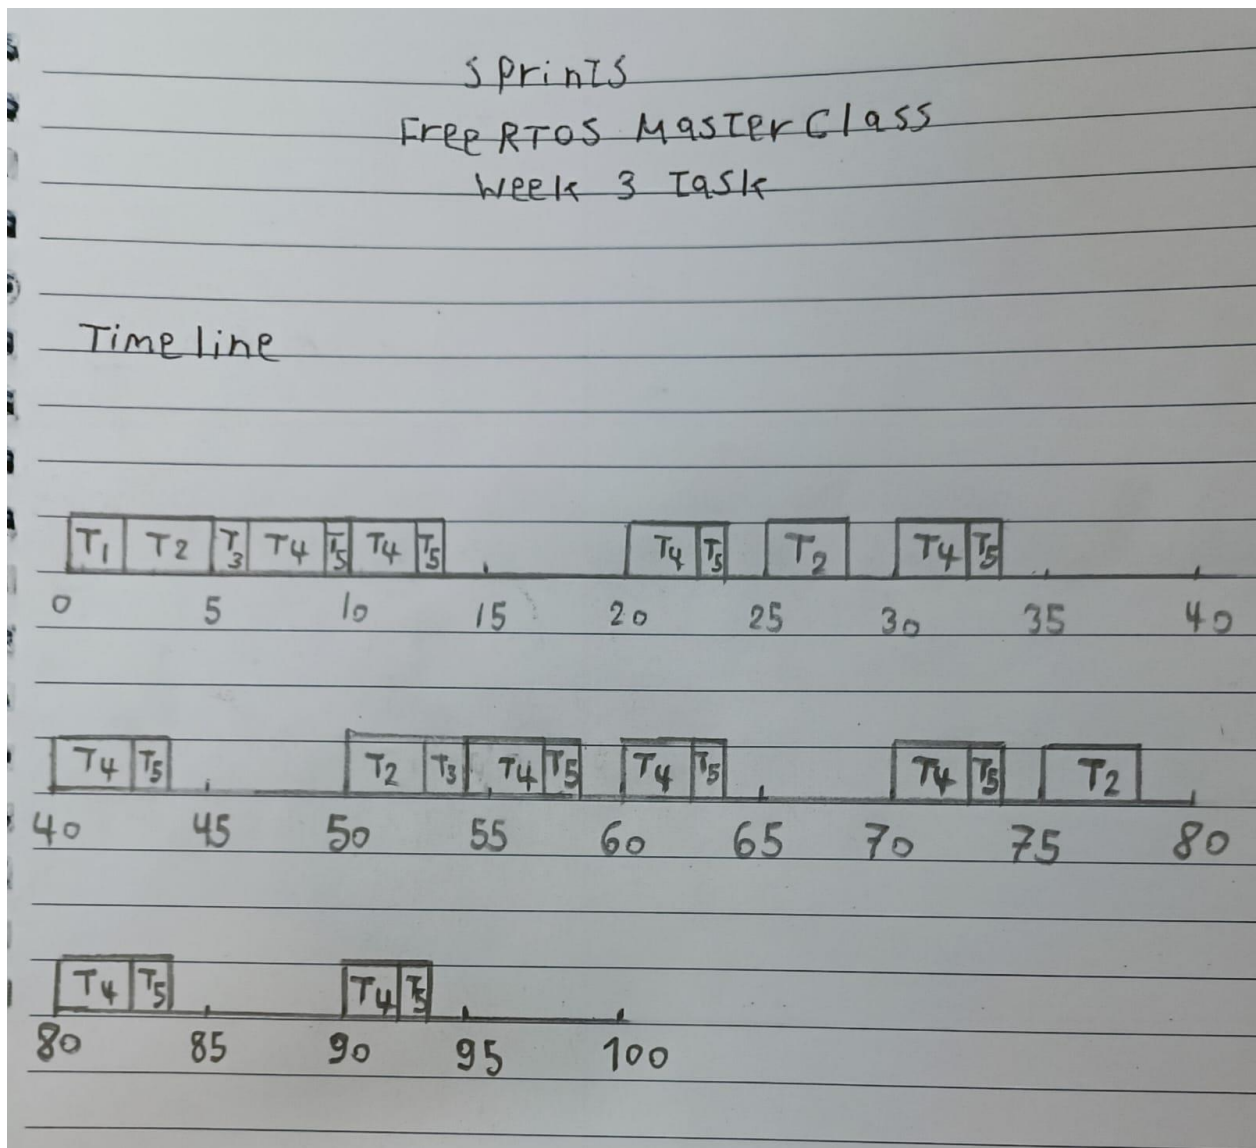 Sprints
Free RTOS Master Class
Week 3 Task
Timeline
T1 T2 T3 T4 T5 T4 T5 T4 T5 T2 T4 T5
0 5 10 15 20 25 30 35 40
T4 T5 T2 T3 T4 T5 T4 T5 T4 T5 T2
40 45 50 55 60 65 70 75 80
T4 T5 T4 T5
80 85 90 95 100